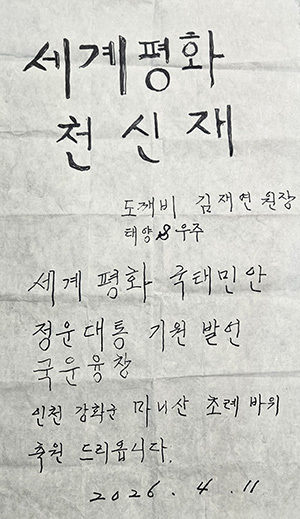 세계평화
천신재
도깨비 김재연 원장
태양 & 우주
세계 평화 국태민안
정운대통 기원 발언
국운융창
인천 강화군 마니산 초례 바위
축원 드리옵니다.
2026. 4. 11